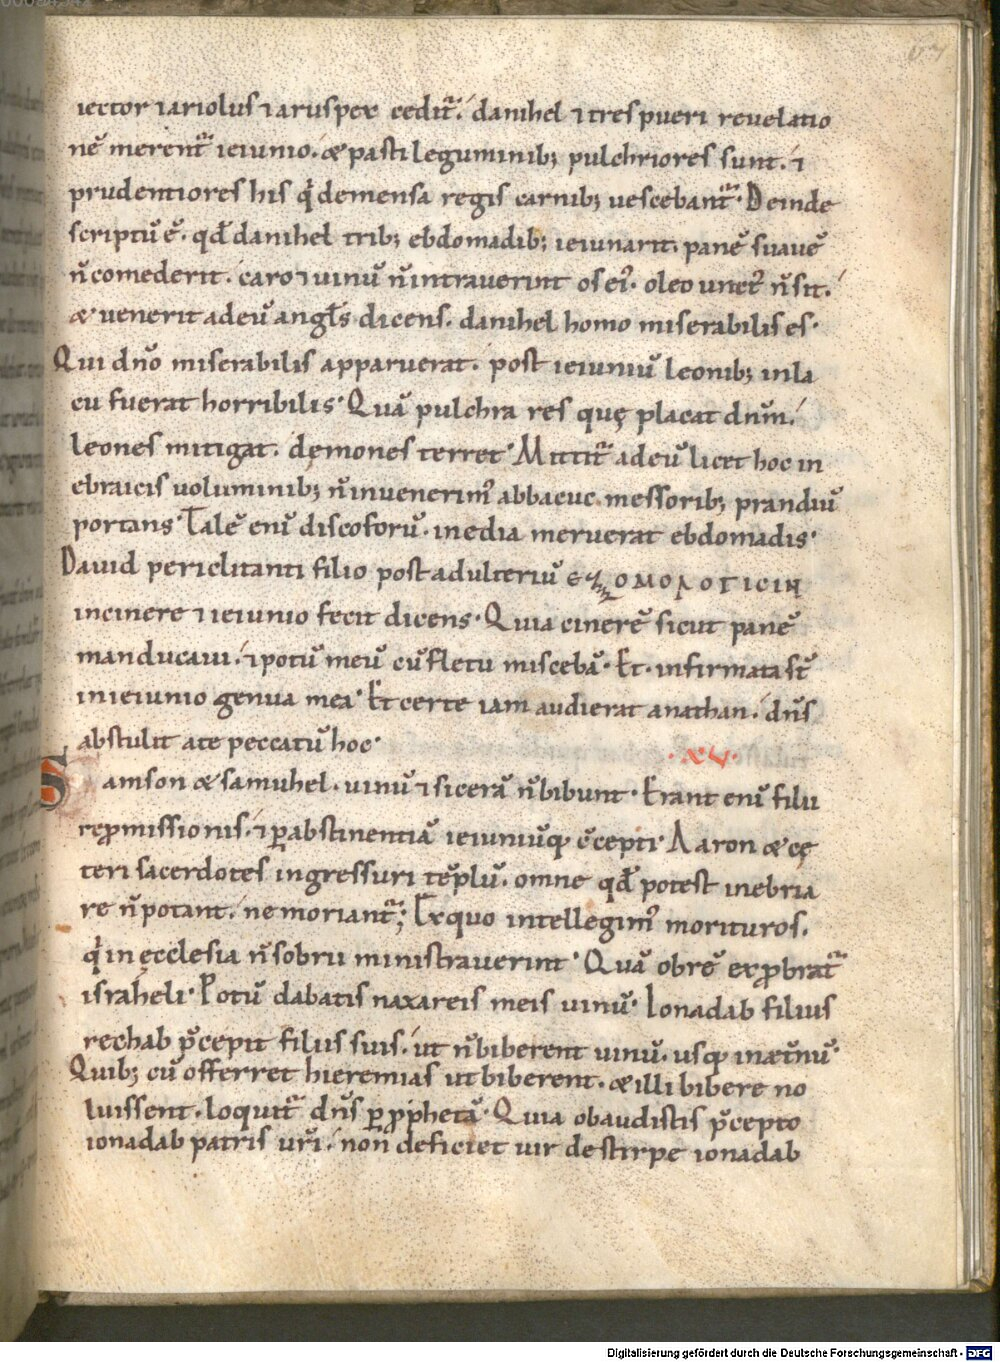 67
iector ⁊ ariolus ⁊ aruspex cedit᷑. danihel ⁊ tres pueri revelatio
nē merent᷑ ieiunio. & pasti leguminib; pulchriores sunt. ⁊
prudentiores his q̍ de mensa regis carnib; uescebant᷑. Deinde
scriptū ē. qđ danihel trib; ebdomadib; ieiunarit. panē suauē
n̄ comederit. caro ⁊ uinū n̄ intrauerint os ei᷒. oleo unct᷒ n̄ sit.
& uenerit ad eū angl̄s dicens. danihel homo miserabilis es.
Qui dn̄o miserabilis apparuerat. post ieiuniū leonib; in la
cu fuerat horribilis. Quā pulchra res quę placat dn̄m.
leones mitigat. dęmones terret. Mittit᷑ ad eū licet hoc in
ebraicis uoluminib; n̄ inuenerim᷒ abbacuc messorib; prandiū
portans. Talē enī discoforū. inedia meruerat ebdomadis.
Dauid periclitanti filio post adulteriū ΕΞΟΜΟΛΟΓΙCΙΝ
in cinere ⁊ ieiunio fecit dicens. Quia cinerē sicut panē
manducaui. ⁊ potū meū cū fletu miscebā. Et. infirmata st̄
in ieiunio genua mea. Et certe iam audierat a nathan. dn̄s
abstulit a te peccatū hoc.
.xv.
Samson & samuhel. uinū ⁊ sicerā n̄ bibunt. Erant enī filii
repmissionis. ⁊ p̱ abstinentiā ieiuniūq; c̄cepti. Aaron & cę
teri sacerdotes ingressuri tēplū. omne qđ potest inebria
re n̄ potant. ne moriant᷑; Ex quo intellegim᷒ morituros.
q̍ in ęcclesia n̄ sobrii ministrauerint. Quā ob rē expbrat᷑
israheli. Potū dabatis naxareis meis uinū. Ionadab filius
rechab p̄cepit filiis suis. ut n̄ biberent uinū. usq; in æt̄nū.
Quib; cū offerret hieremias ut biberent. & illi bibere no
luissent. loquit᷑ dn̄s p̱ pphetā. Quia obaudistis p̄cepto
ionadab patris ur̄i. non deficiet uir de stirpe ionadab
Digitalisierung gefördert durch die Deutsche Forschungsgemeinschaft - DFG